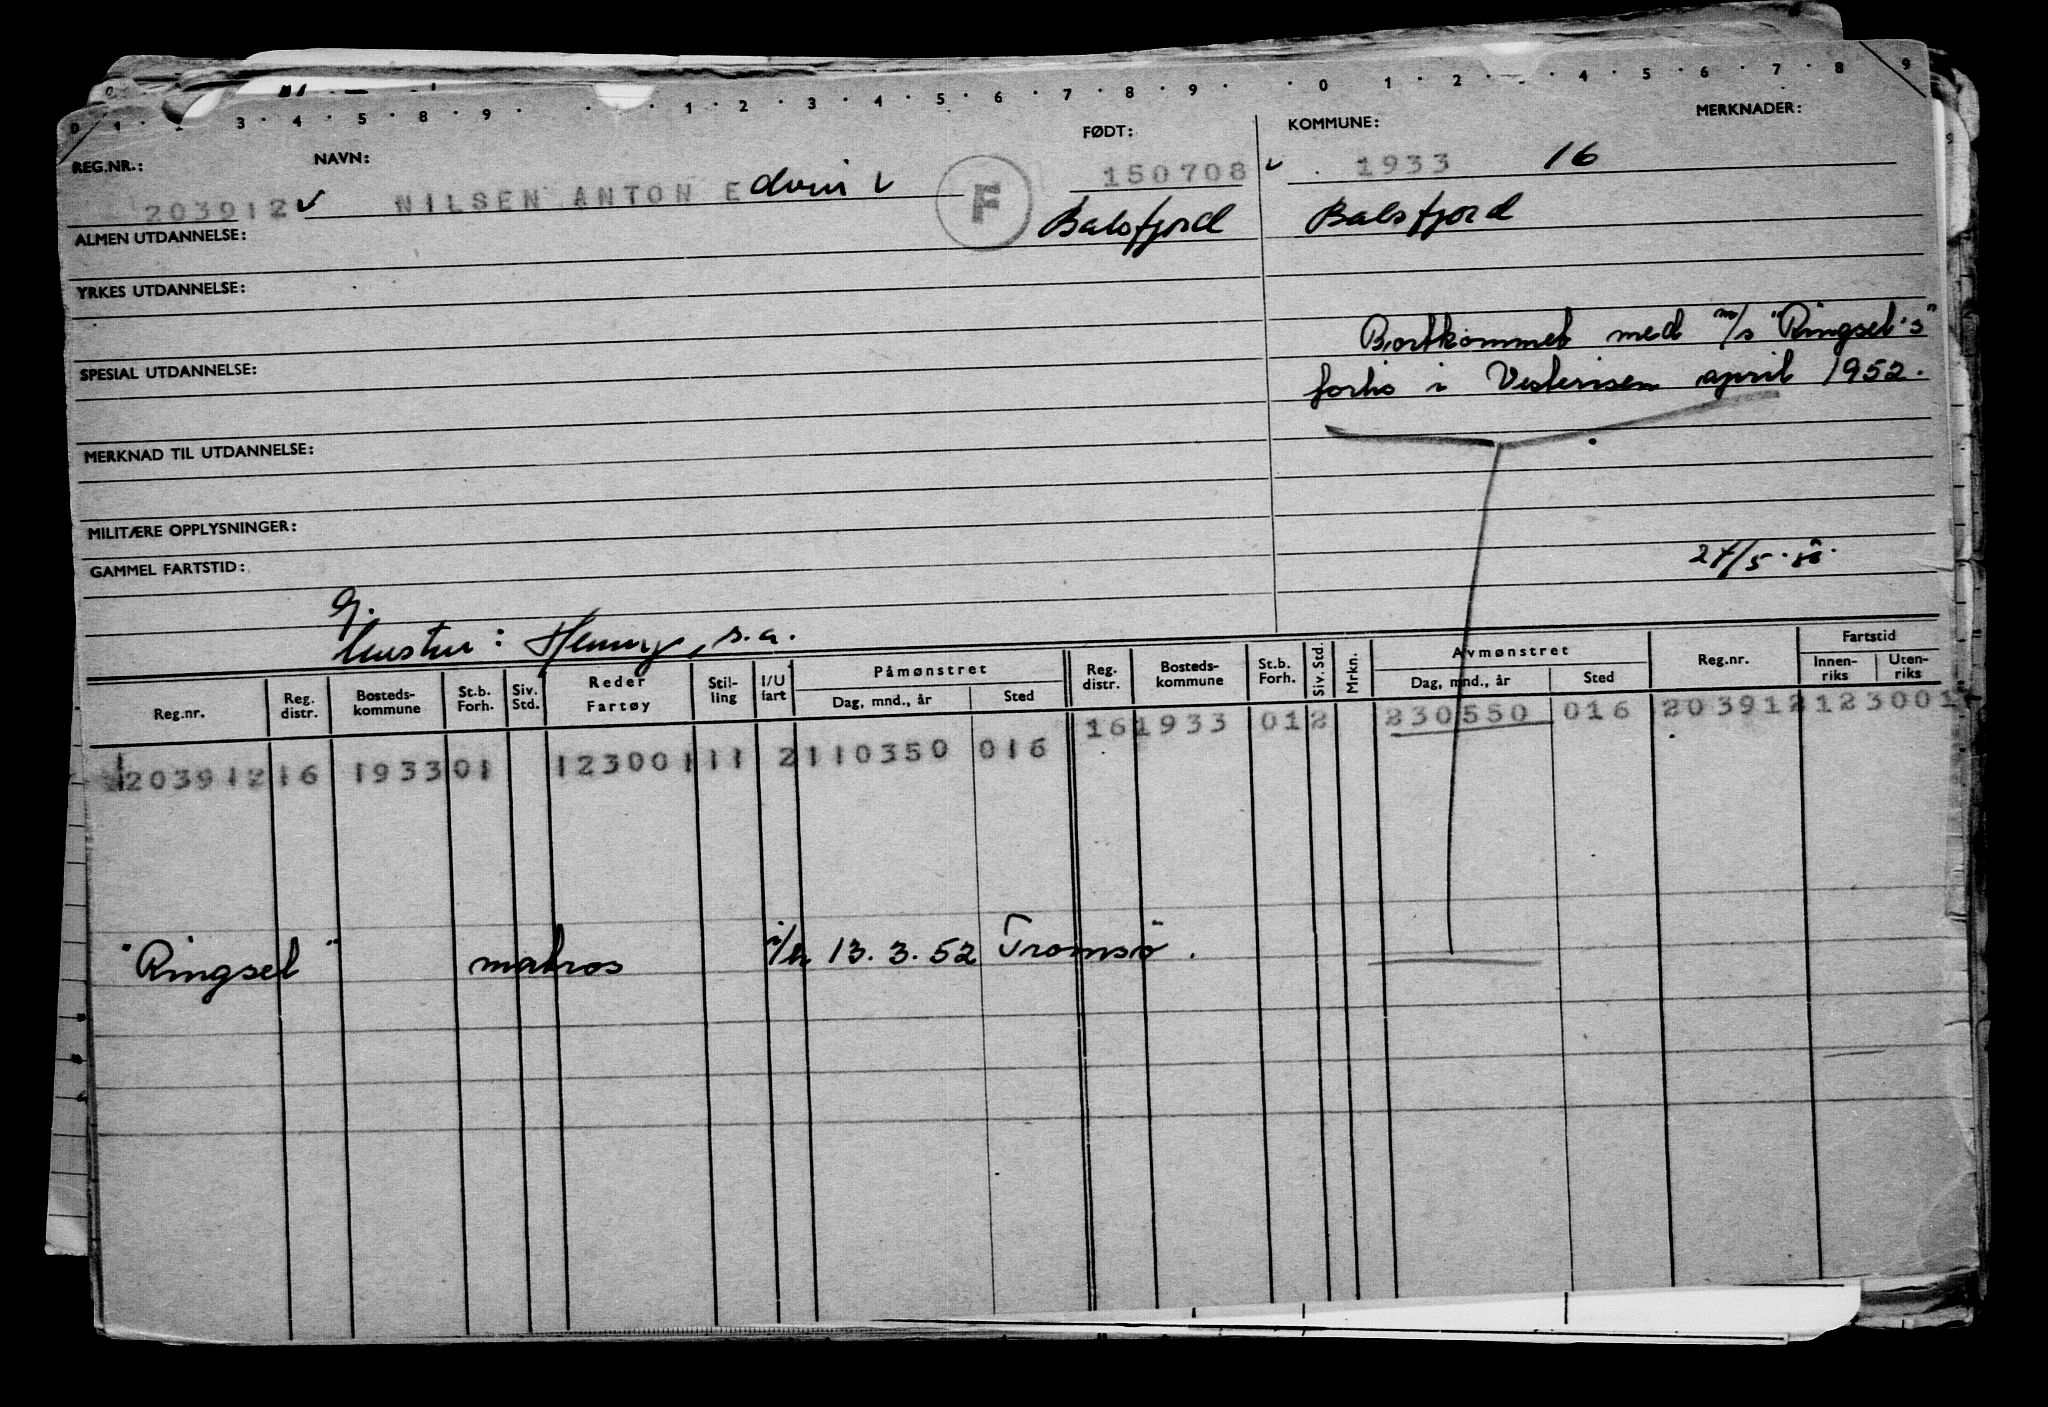 0 1 · · 3 · 4 · 5 · 8 · 9 · · · 1 · 2 · 3 · 4 · 5 · 6 · 7 · 8 · 9 · · 0 · 1 · 2 · · 4 · 5 · 6 · 7 · 8 · 9
REG.NR.: NAVN: FØDT: KOMMUNE: MERKNADER:
203912 ✓ NILSEN ANTON Edvin ✓ F 150708 ✓ 1933 16
ALMEN UTDANNELSE: Balsfjord Balsfjord
YRKES UTDANNELSE:
Bortkommet med m/s "Ringsel's"
SPESIAL UTDANNELSE: forlis i Vesterisen april 1952.
MERKNAD TIL UTDANNELSE:
MILITÆRE OPPLYSNINGER:
GAMMEL FARTSTID: 27/5.
g.
hustru: Henny, s.a.
Reg.nr. Reg. distr. Bosteds- kommune St.b. Forh. Siv. Std. Reder Fartøy Stil- ling I/U fart Påmønstret Dag, mnd., år Sted Reg. distr. Bosteds- kommune St.b. Forh. Siv. Std. Mrkn. Avmønstret Dag, mnd., år Sted Reg.nr. Fartstid Innen- riks Uten- riks
16 1933 01 2 230550 016 203912 123001
203912 16 1933 01 123001 11 2 110350 016
"Ringsel" matros 13.3.52 Tromsø.